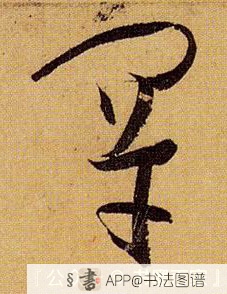 罕
§書 APP@书法图谱